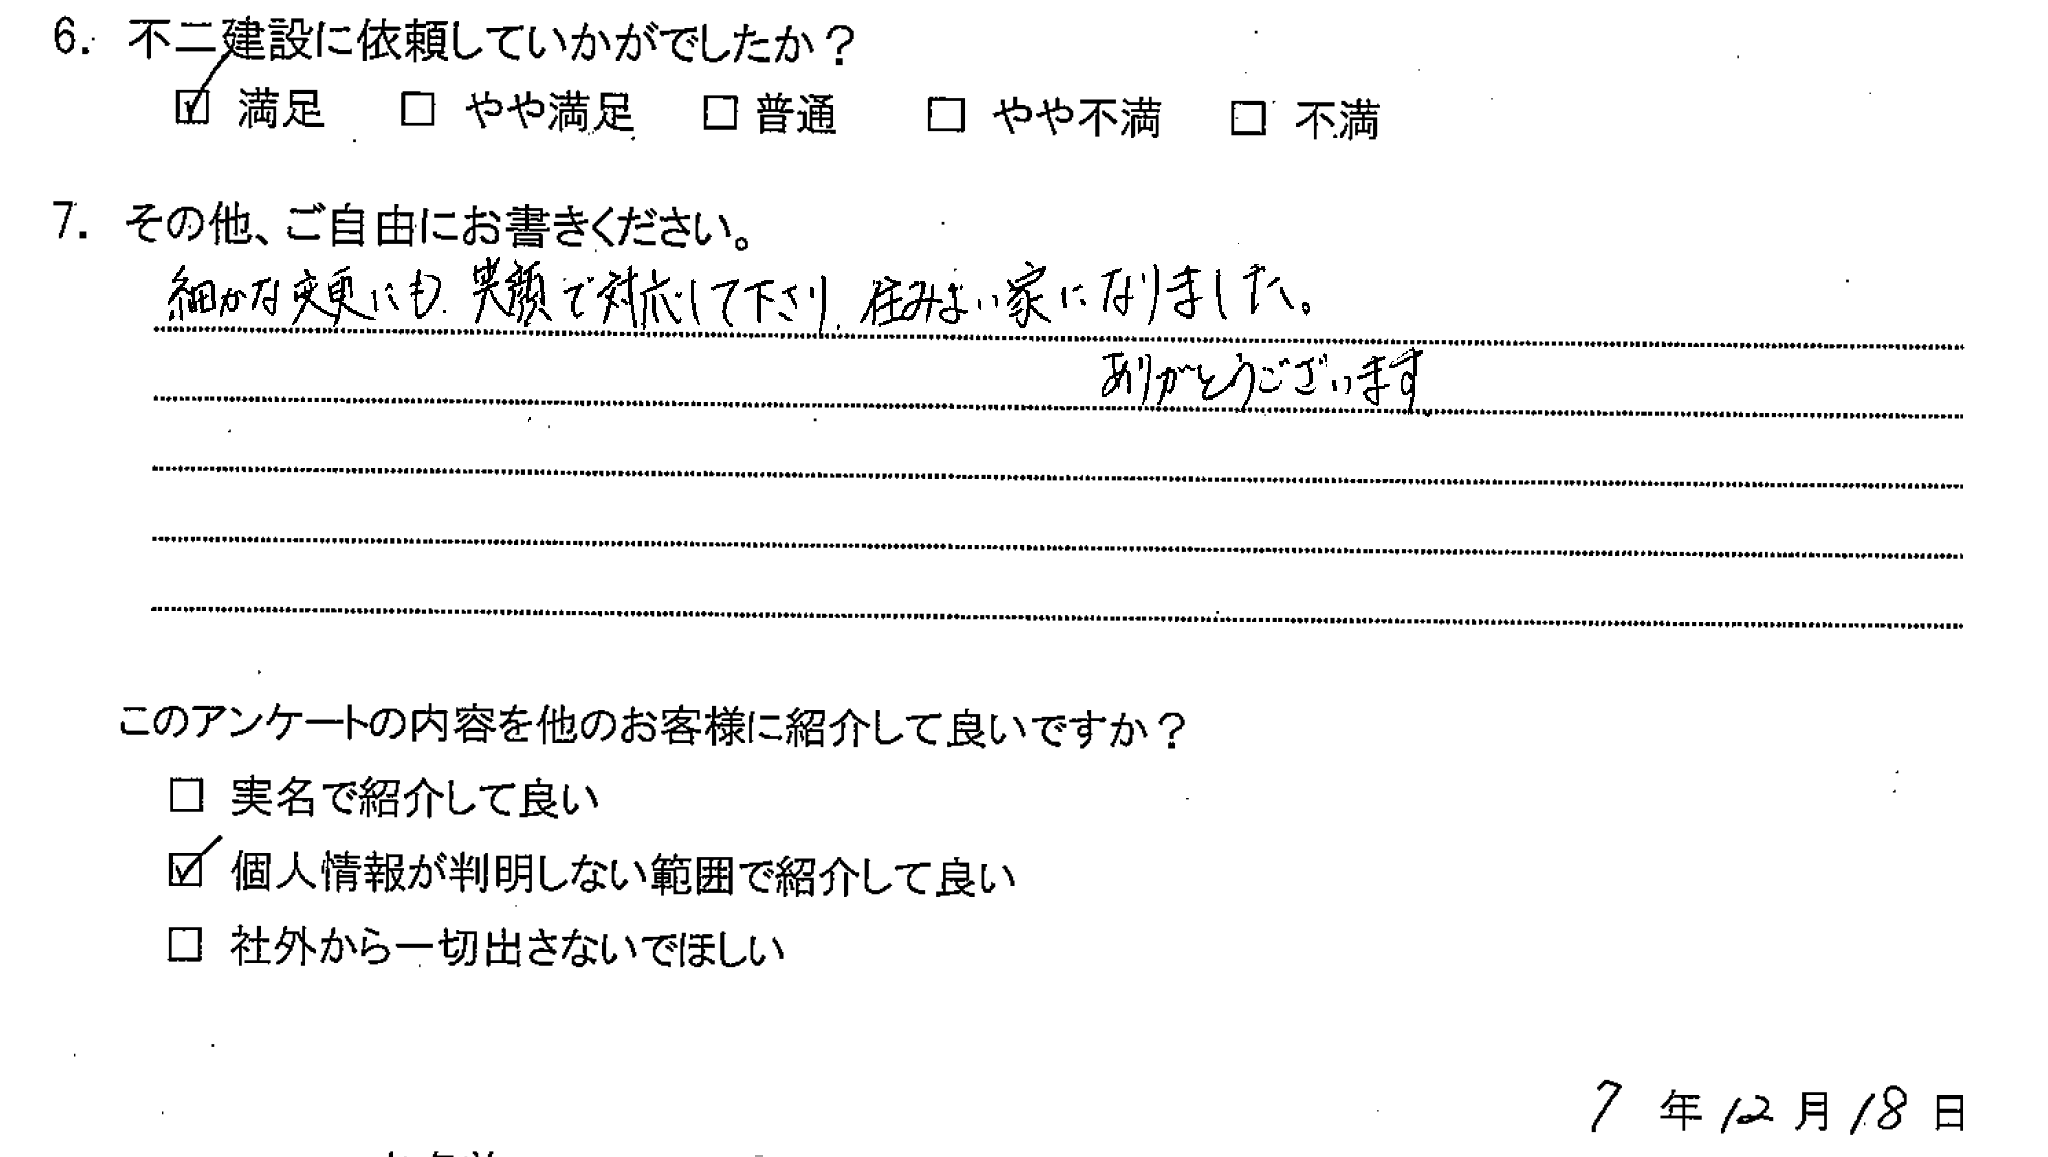 6. 不二建設に依頼していかがでしたか?
☑ 満足 □ やや満足 □ 普通 □ やや不満 □ 不満
7. その他、ご自由にお書きください。
細かな変更にも、笑顔で対応して下さり、住みよい家になりました。
ありがとうございます
このアンケートの内容を他のお客様に紹介して良いですか?
□ 実名で紹介して良い
☑ 個人情報が判明しない範囲で紹介して良い
□ 社外から一切出さないでほしい
7 年 12 月 18 日